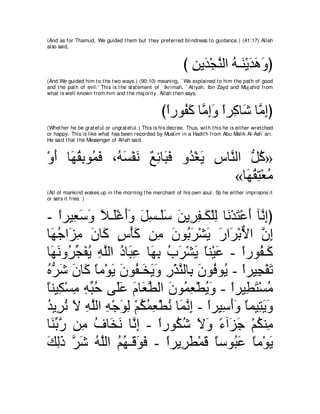 (And as for Thamud, We guided them but they preferred blindness to guidance.) (41:17) Allah
also said,
﴿وَهَدَيْنَـهُ النَّجْدَينِ﴾
(And We guided him to the two ways.) (90:10) meaning, `We explained to him the path of good
and the path of evil.' This is the statement of `Ikrimah, `Atiyah, Ibn Zayd and Mujahid from
what is well-known from him and the majority. Allah then says,
﴿إِمَّا شَاكِراً وَإِمَّا كَفُوراً﴾
(Whether he be grateful or ungrateful.) This is his decree. Thus, with this he is either wretched
or happy. This is like what has been recorded by Muslim in a Hadith from Abu Malik Al-Ash`ari.
He said that the Messenger of Allah said,
«كُلُّ النَّاسِ يَغْدُو فَبَائِعٌ نَفْسَهُ، فَمُوبِقُهَا أَوْ
مُعْتِقُهَا»
(All of mankind wakes up in the morning the merchant of his own soul. So he either imprisons it
or sets it free.)
﴿إِنَّآ أَعْتَدْنَا لِلْكَـفِرِينَ سَلَـسِلَ وَأَغْلَـلاً وَسَعِيراً -
إِنَّ الاٌّبْرَارَ يَشْرَبُونَ مِن كَأْسٍ كَانَ مِزَاجُهَا
كَـفُوراً - عَيْناً يَشْرَبُ بِهَا عِبَادُ اللَّهِ يُفَجِّرُونَهَا
تَفْجِيراً - يُوفُونَ بِالنَّذْرِ وَيَخَـفُونَ يَوْماً كَانَ شَرُّهُ
مُسْتَطِيراً - وَيُطْعِمُونَ الطَّعَامَ عَلَى حُبِّهِ مِسْكِيناً
وَيَتِيماً وَأَسِيراً - إِنَّمَا نُطْعِمُكُمْ لِوَجْهِ اللَّهِ لاَ نُرِيدُ
مِنكُمْ جَزَآءً وَلاَ شُكُوراً - إِنَّا نَخَافُ مِن رَّبِّنَا
يَوْماً عَبُوساً قَمْطَرِيراً - فَوَقَـهُمُ اللَّهُ شَرَّ ذَلِكَ